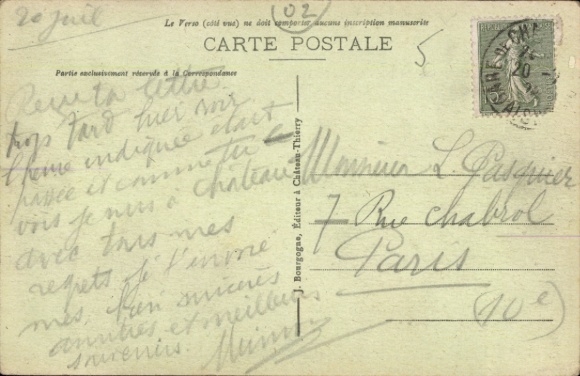 20 Juil
(02)
Le Verso (côté vue) ne doit comporter aucune inscription manuscrite
CARTE POSTALE
5
Partie exclusivement réservée à la Correspondance
GARE DE CHA
20
AISNE
Reçu ta lettre
trop tard hier soir
l'heure indiquée était
passée et comme tu le
vois je suis à Château
avec tous mes
regrets je t'envoie
mes bien sincères
amitiés et meilleurs
souvenirs.
J. Bourgogne, Éditeur à Château-Thierry
Monsieur L. Pasquier
7 Rue Chabrol
Paris
(10e)